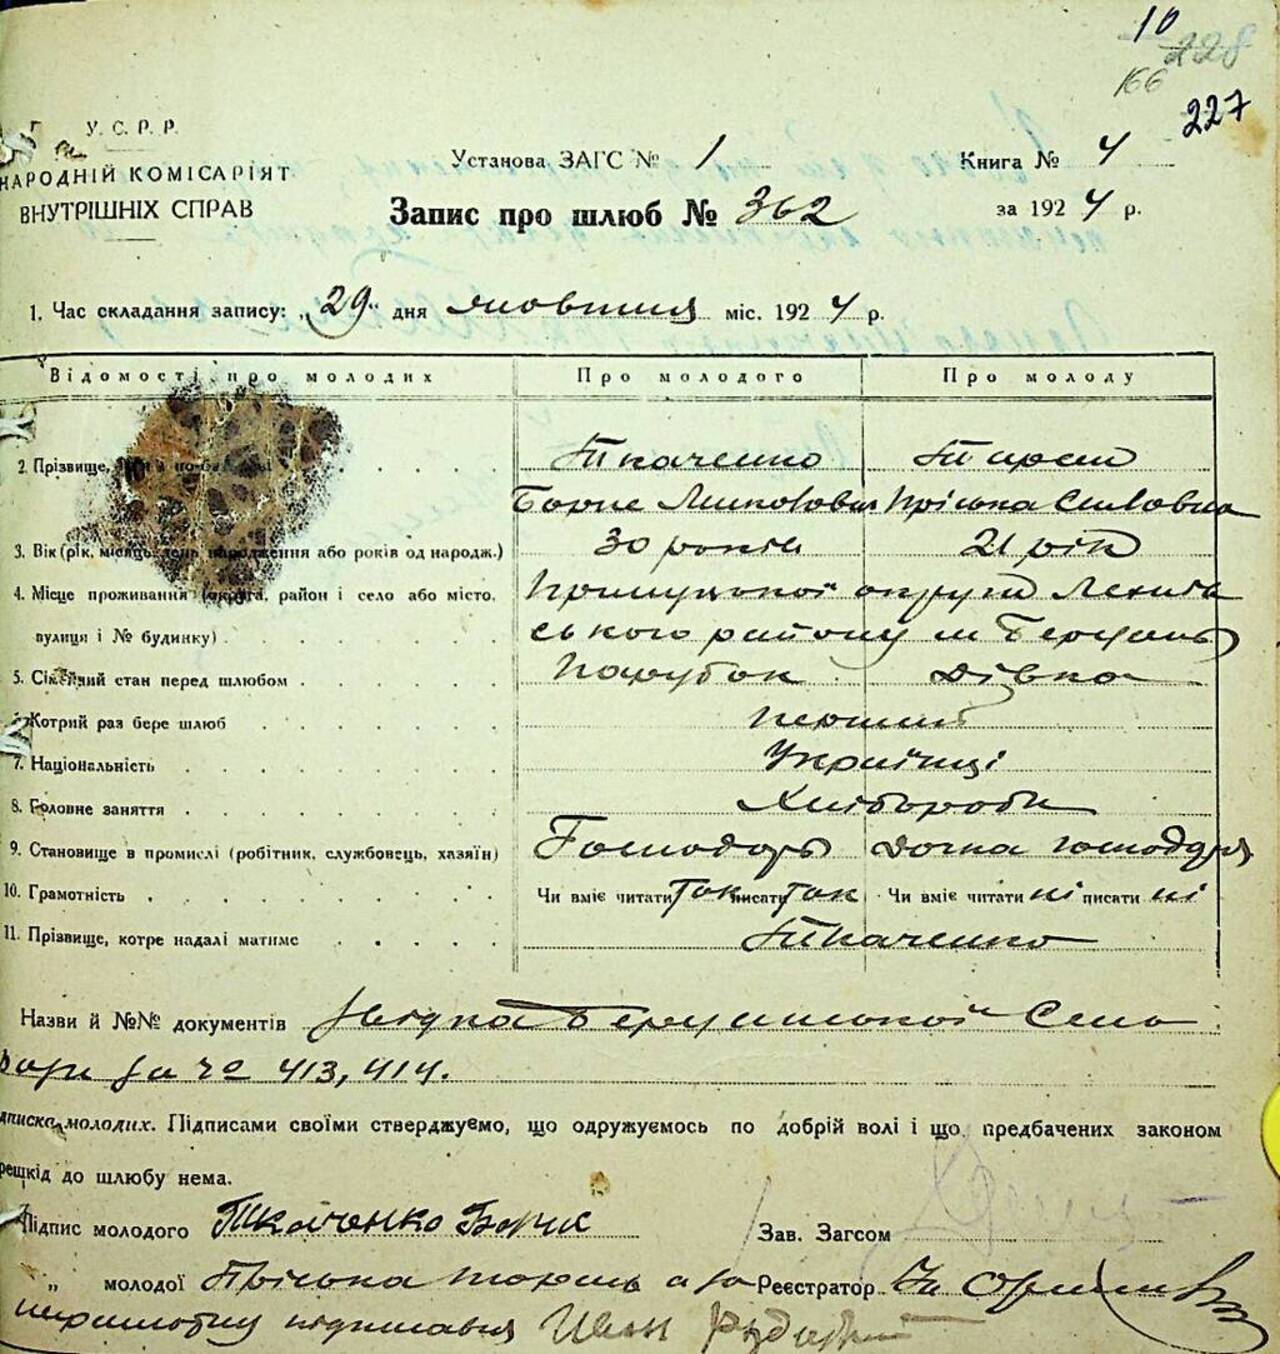 10
228
166
227
У. С. Р. Р.
НАРОДНІЙ КОМІСАРІЯТ
ВНУТРІШНІХ СПРАВ
Установа ЗАГС № 1
Книга № 4
Запис про шлюб № 362
за 1924 р.
1. Час складання запису: „29“ дня жовтня міс. 1924 р.
Відомості про молодих Про молодого Про молоду
2. Прізвище, Ткаченко
Борис Присьна
3. Вік (рік, місяць, день народження або років од народж.) 30 років 21 рік
4. Місце проживання (округа, район і село або місто, Прилуцької округи
вулиця і № будинку) ського району м
5. Сімейний стан перед шлюбом Парубок Дівка
6. Котрий раз бере шлюб перший
7. Національність Українці
8. Головне заняття Хлібороби
9. Становище в промислі (робітник, службовець, хазяїн) Господарь Дочка господаря
10. Грамотність Чи вміє читати так писати так Чи вміє читати ні писати ні
11. Прізвище, котре надалі матиме Ткаченко
Назви й №№ документів
за чо 413, 414.
дписка молодих. Підписами своїми стверджуємо, що одружуємось по добрій волі і що предбачених законом
решкід до шлюбу нема.
Підпис молодого Ткаченко Борис Зав. Загсом
„ молодої Реєстратор
Иван